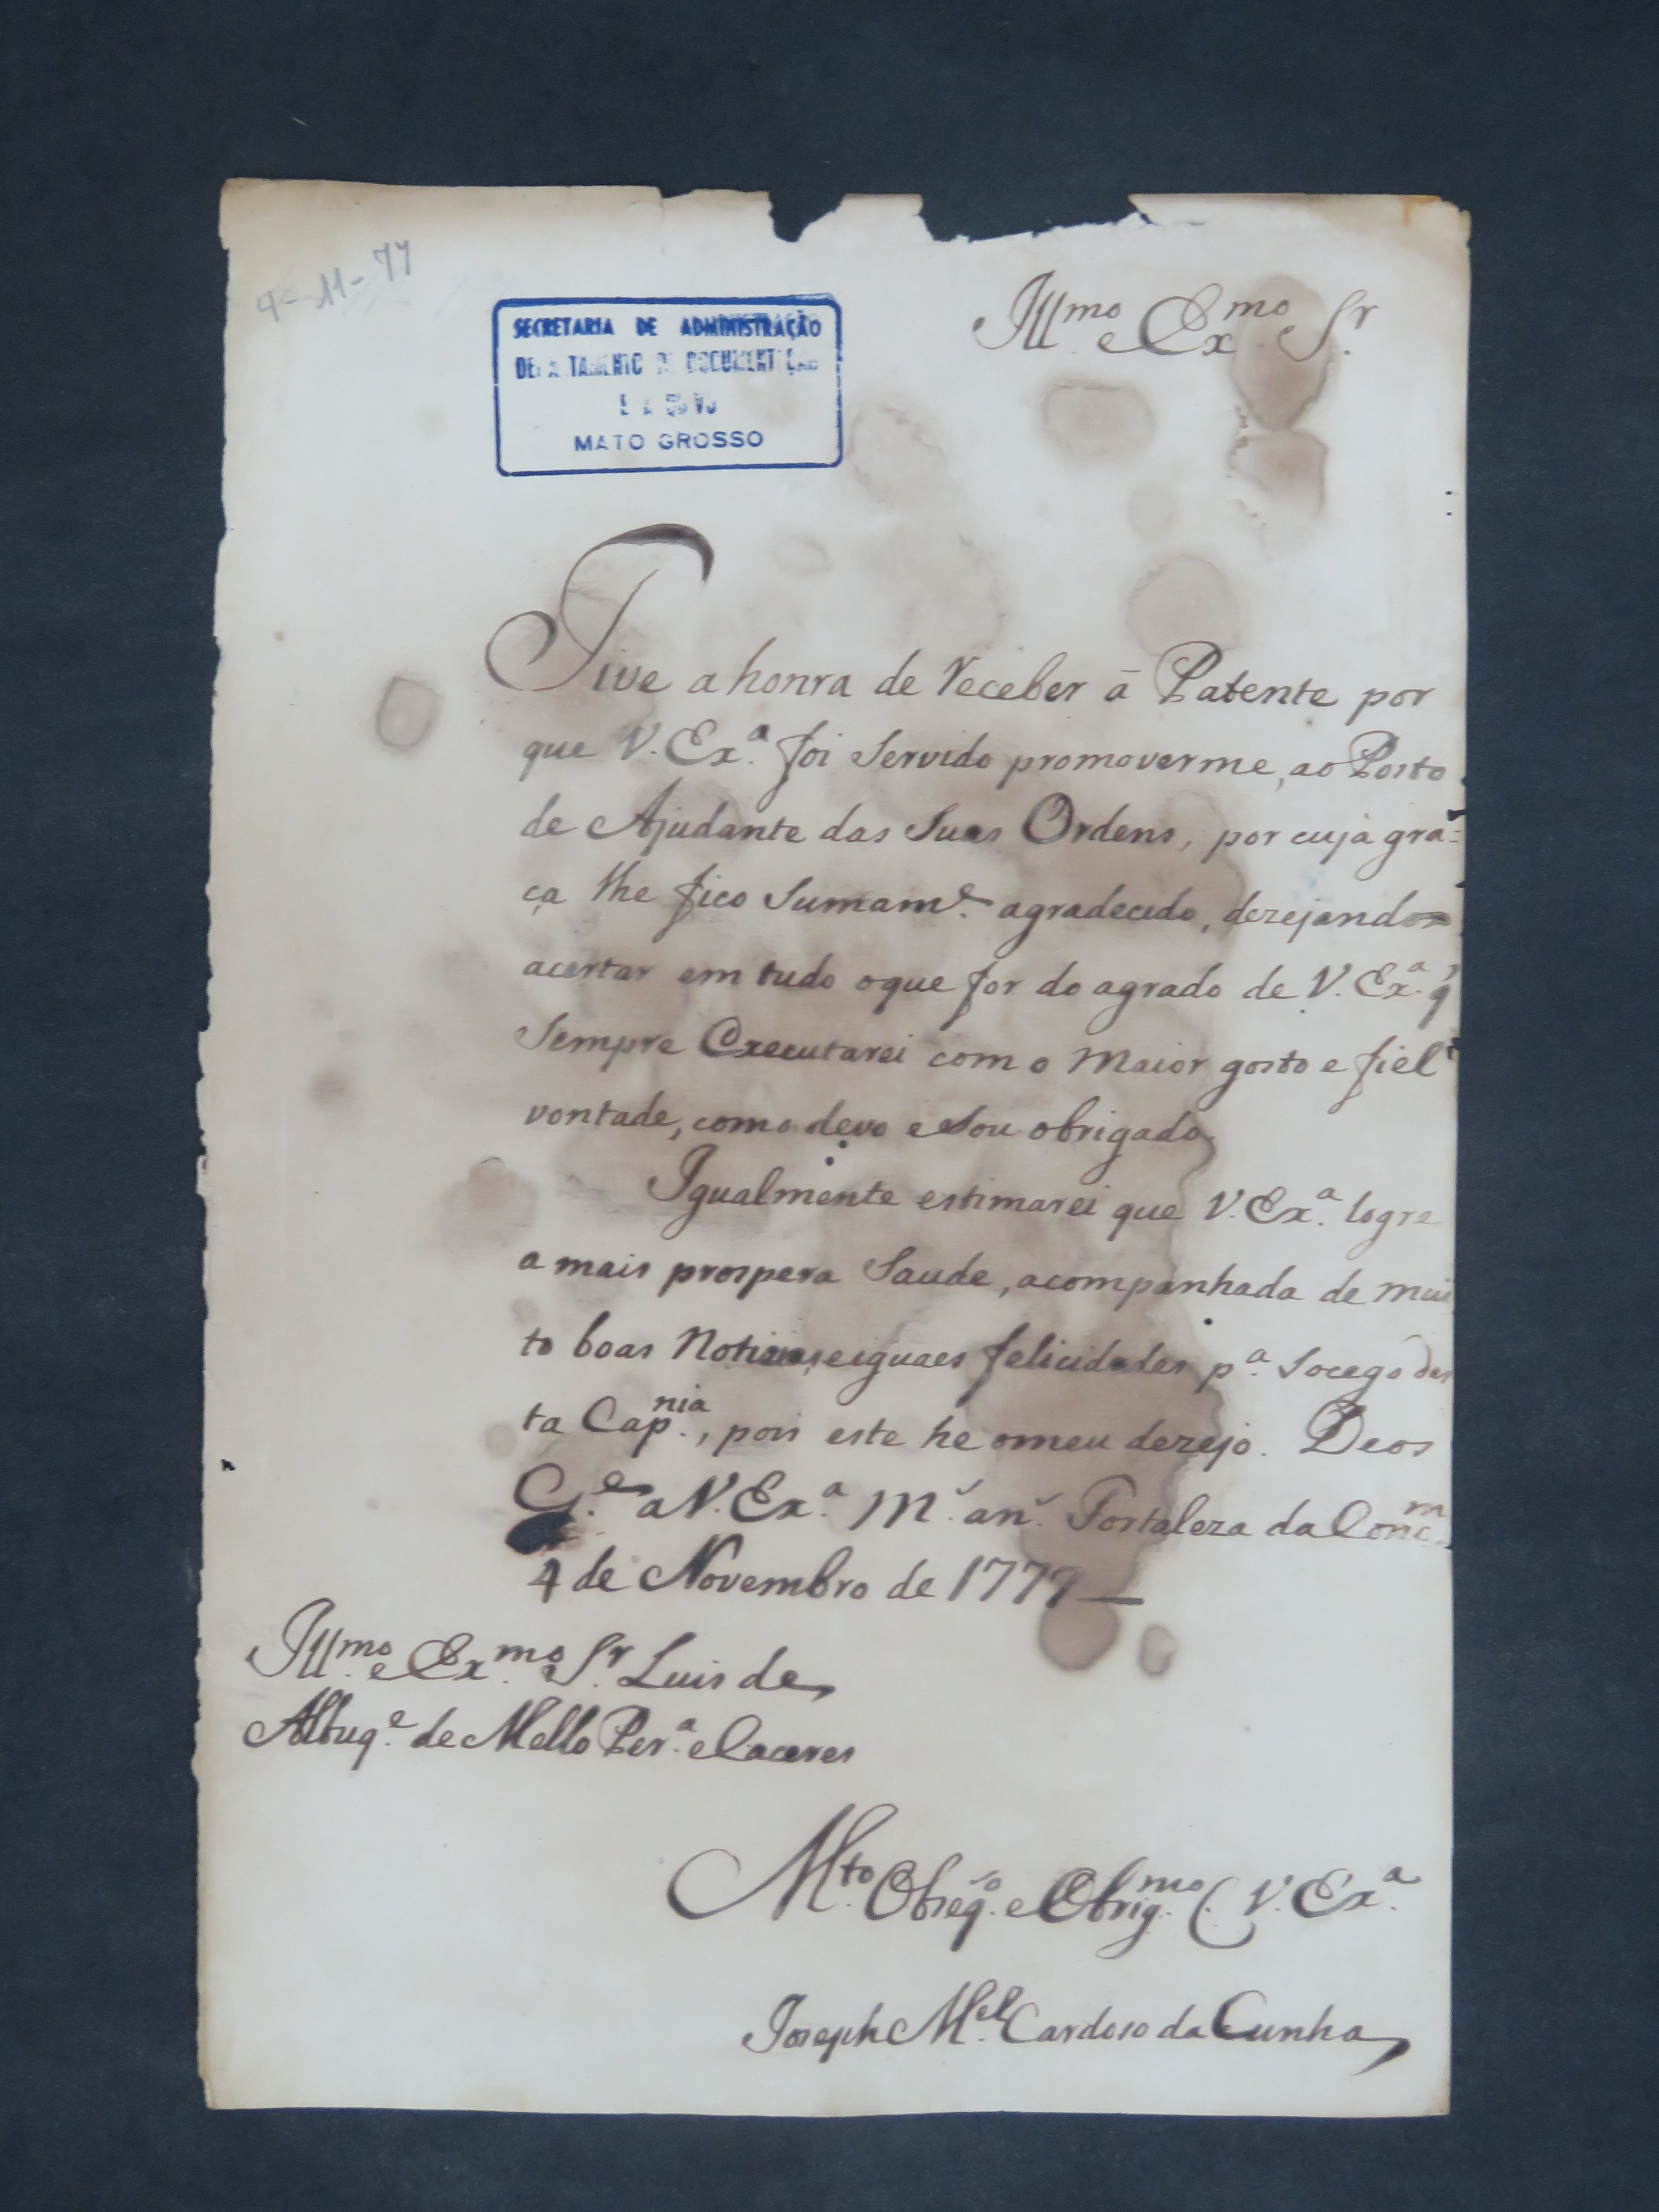 4-11-77
SECRETARIA DE ADMINISTRAÇÃO
DEPARTAMENTO DE DOCUMENTAÇÃO
MATO GROSSO
Ill.mo e Ex.mo S.r
Tive a honra de receber á Patente por
que V. Ex.a foi Servido promoverme, ao Posto
de Ajudante das Suas Ordens, por cuja gra=
ça lhe fico Sumam.e agradecido, dezejando
acertar em tudo oque for do agrado de V. Ex.a q'
Sempre Executarei com o Maior gosto e fiel
vontade, como devo e Sou obrigado.
Igualmente estimarei que V. Ex.a logre
a mais prospera Saude, acompanhada de mui
to boas Noticias, e iguaes felicidades p.a Socego des
ta Cap.nia, pois este he o meu dezejo. Deos
G.e a V. Ex.a m.' an.' Fortaleza da Conc.m
4 de Novembro de 1777 —
Ill.mo e Ex.mo S.r Luis de
Albuq.e de Mello Per.a e Caceres
M.to Obseq.o e Obrig.mo C. V. Ex.a
Joseph M.el Cardoso da Cunha